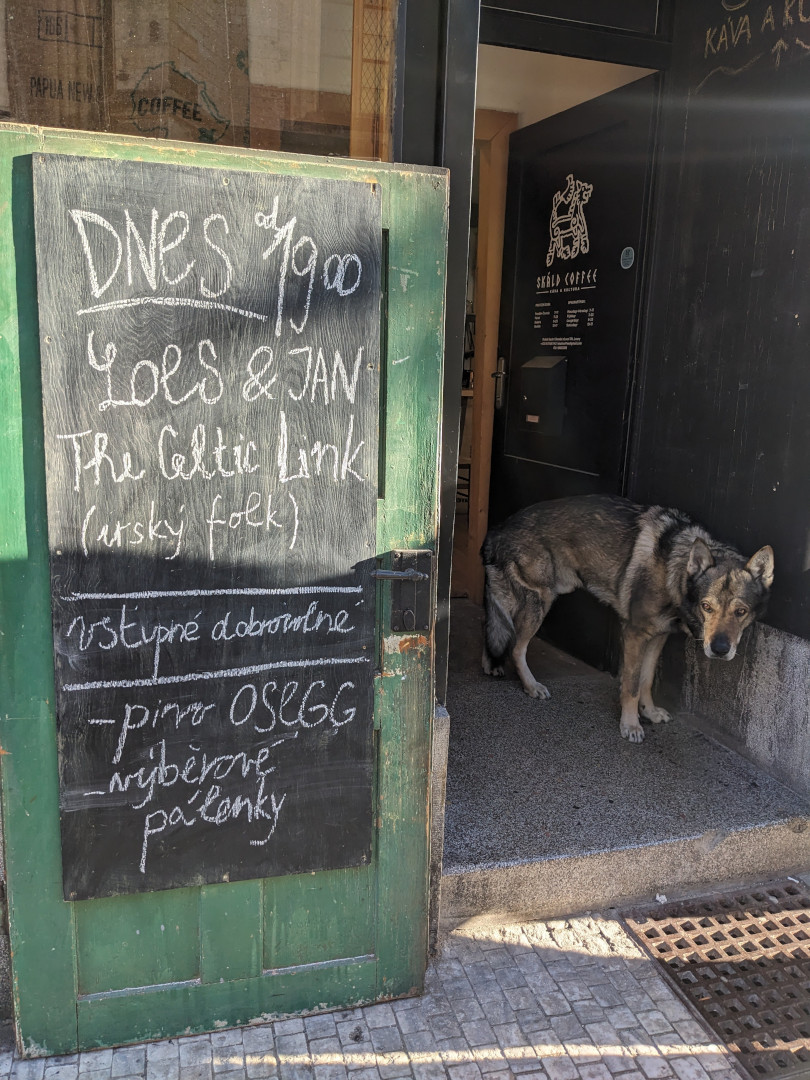 PAPUA NEW
COFFEE
KÁVA A KU
DNES od 19.00
LOES & JAN
The Celtic Link
(irský folk)
vstupné dobrovolné
- pivo OSEGG
- výběrové
pálenky
SKÁLD COFFEE
KÁVA & KULTURA